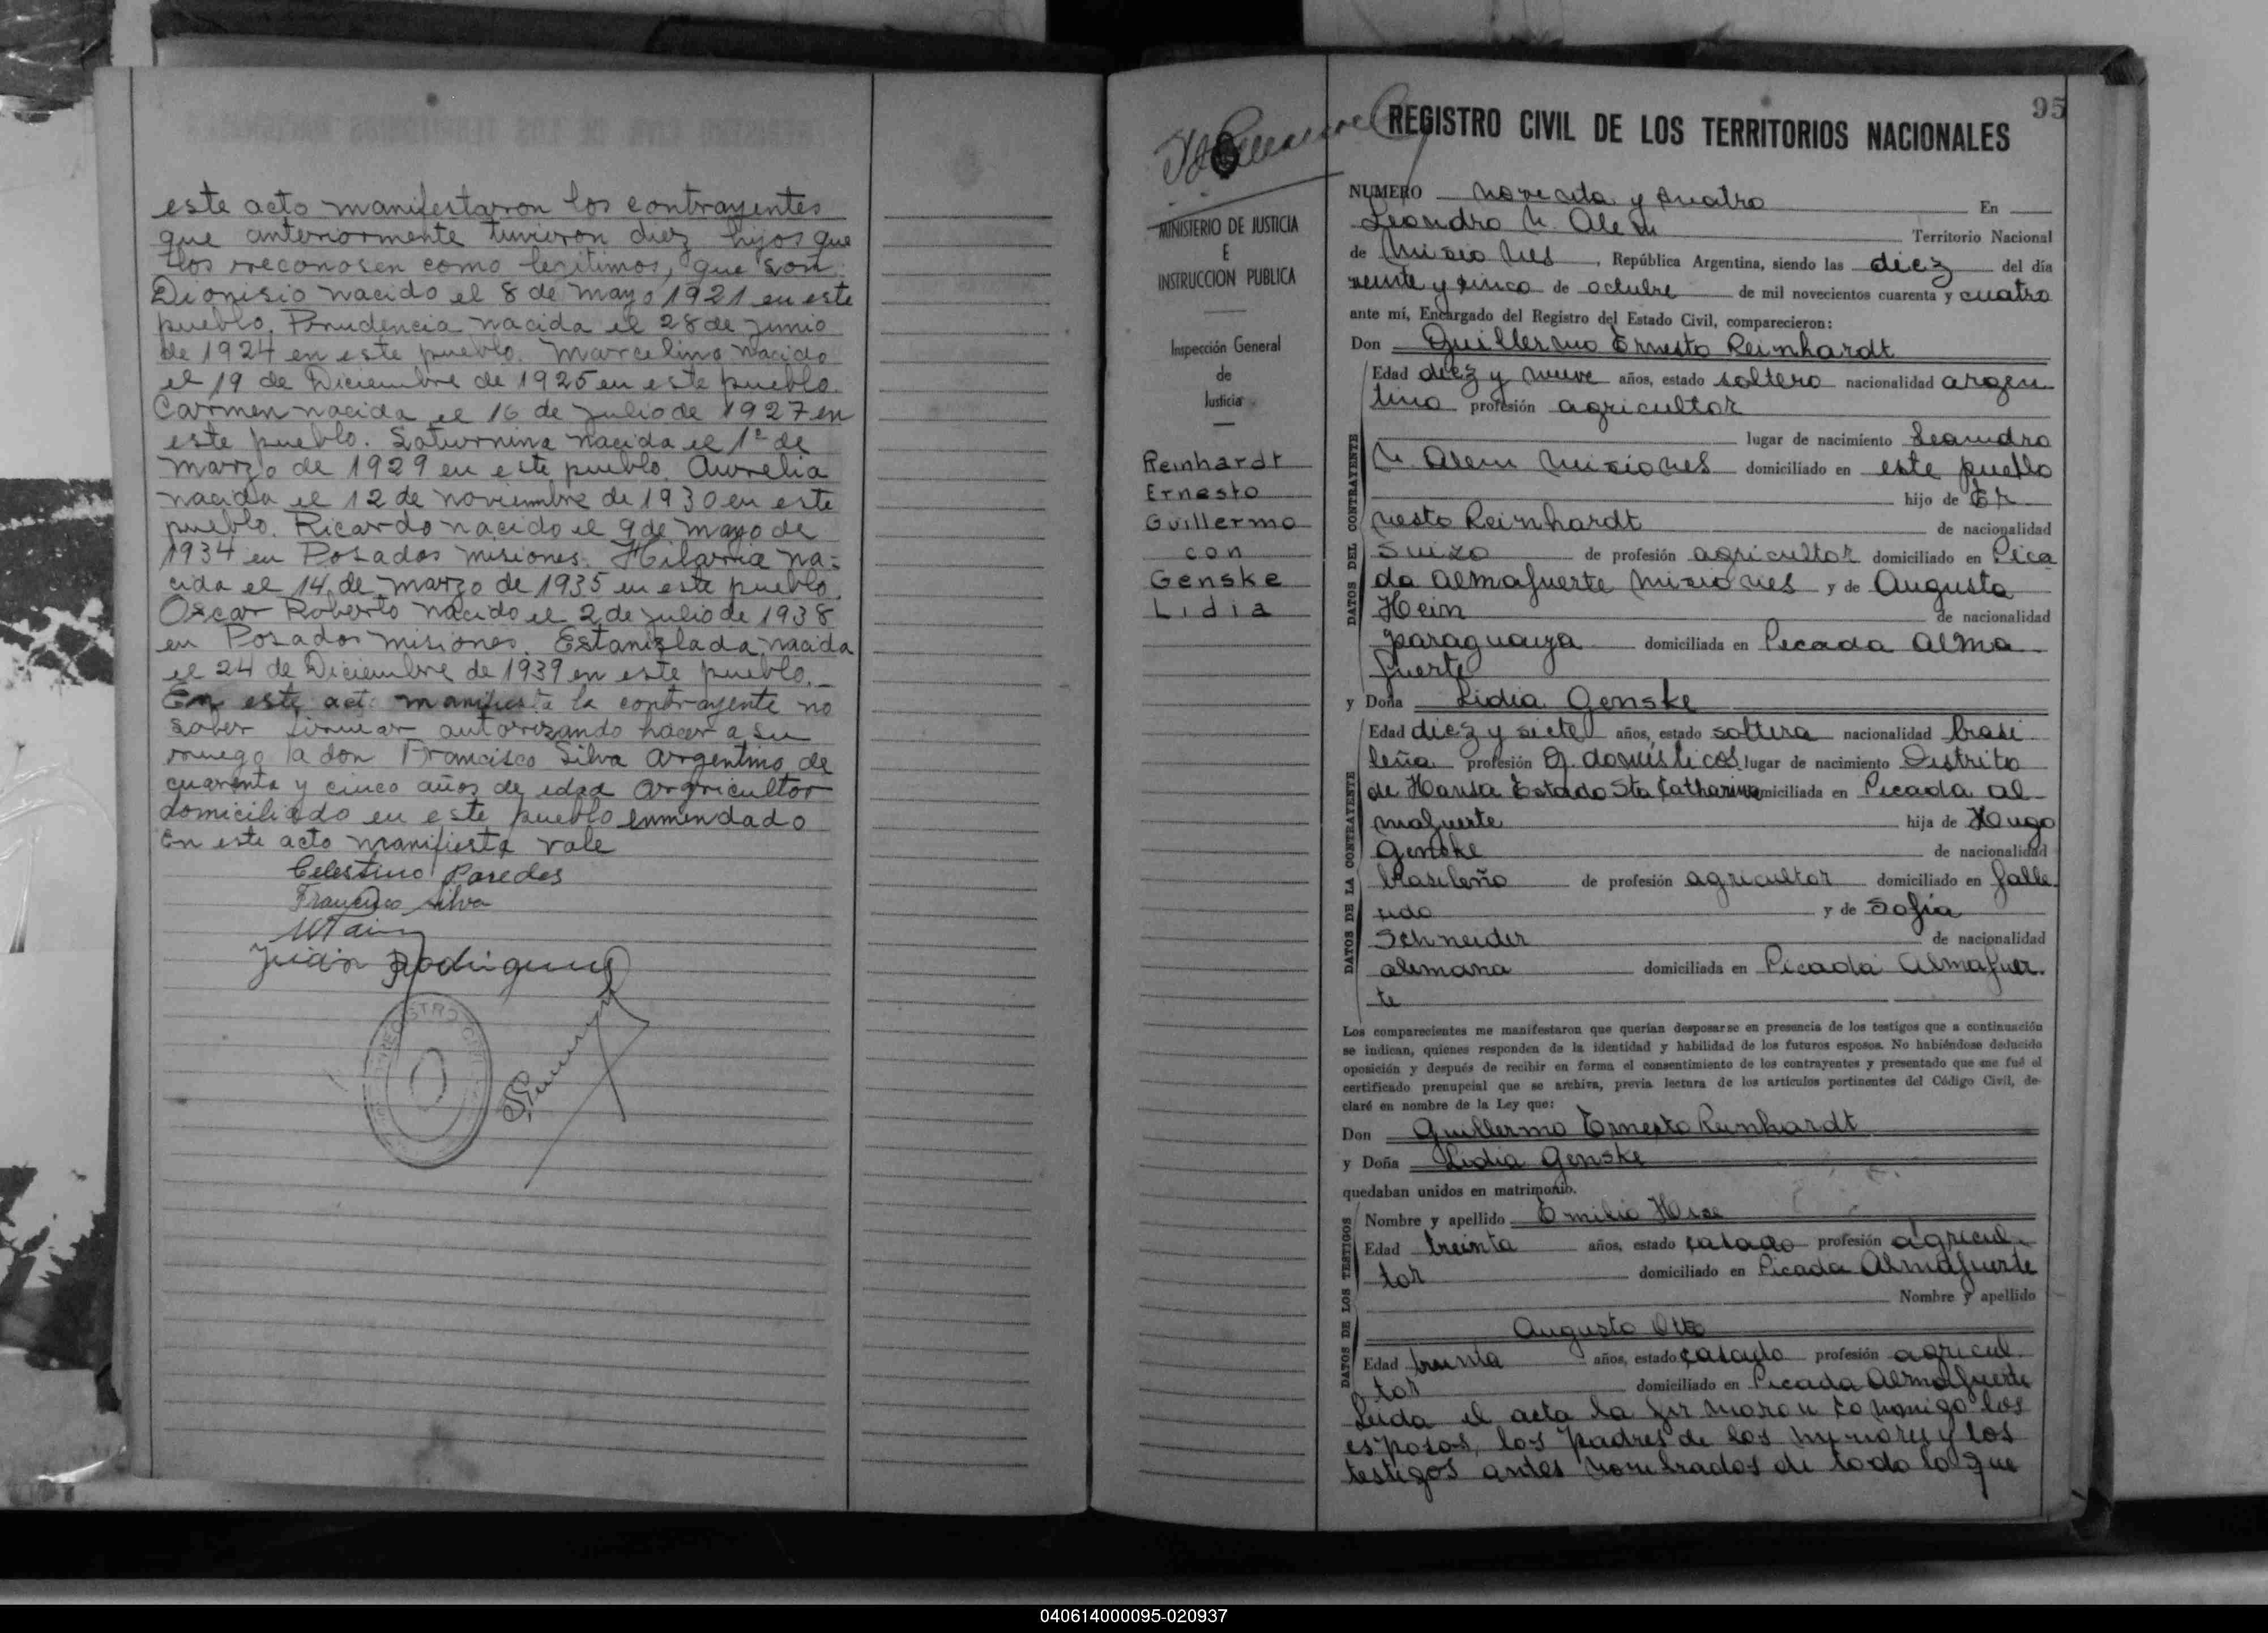 este acto manifestaron los contrayentes
que anteriormente tuvieron diez hijos que
los reconosen como legitimos, que son:
Dionisio nacido el 8 de mayo 1921 en este
pueblo. Prudencia nacida el 28 de junio
de 1924 en este pueblo. Marcelino nacido
el 19 de Diciembre de 1925 en este pueblo.
Carmen nacida el 16 de Julio de 1927 en
este pueblo. Saturnina nacida el 1º de
marzo de 1929 en este pueblo. Aurelia
nacida el 12 de noviembre de 1930 en este
pueblo. Ricardo nacido el 9 de mayo de
1934 en Posadas misiones. Hilaria na=
cida el 14 de marzo de 1935 en este pueblo.
Oscar Roberto nacido el 2 de julio de 1938
en Posadas misiones. Estanislada nacida
el 24 de Diciembre de 1939 en este pueblo.
En este acto manifiesta la contrayente no
saber firmar autorizando hacer a su
ruego a don Francisco Silva argentino de
cuarenta y cinco años de edad Argricultor
domiciliado en este pueblo enmendado
En este acto manifiesta vale
Celestino Paredes
Francisco Silva
Juan Rodriguez
95
REGISTRO CIVIL DE LOS TERRITORIOS NACIONALES
MINISTERIO DE JUSTICIA
E
INSTRUCCION PUBLICA
Inspección General
de
Justicia
Reinhardt
Ernesto
Guillermo
con
Genske
Lidia
NUMERO noventa y cuatro En
Leandro N. Alem Territorio Nacional
de Misiones, República Argentina, siendo las diez del día
veinte y cinco de octubre de mil novecientos cuarenta y cuatro
ante mí, Encargado del Registro del Estado Civil, comparecieron:
Don Guillermo Ernesto Reinhardt
DATOS DEL CONTRAYENTE
Edad diez y nueve años, estado soltero nacionalidad argen
tino profesión agricultor
lugar de nacimiento Leandro
N. Alem Misiones domiciliado en este pueblo
hijo de Er
nesto Reinhardt de nacionalidad
Suizo de profesión agricultor domiciliado en Pica
da Almafuerte Misiones y de Augusta
Hein de nacionalidad
paraguaya domiciliada en Picada Alma
fuerte
y Doña Lidia Genske
DATOS DE LA CONTRAYENTE
Edad diez y siete años, estado soltera nacionalidad brasi
leña profesión q. domésticos lugar de nacimiento Distrito
de Hansa Estado Sta Catharina domiciliada en Picada Al
mafuerte hija de Hugo
Genske de nacionalidad
brasileño de profesión agricultor domiciliado en falle
cido y de Sofia
Schneider de nacionalidad
alemana domiciliada en Picada Almafuer.
te
Los comparecientes me manifestaron que querían desposarse en presencia de los testigos que a continuación
se indican, quienes responden de la identidad y habilidad de los futuros esposos. No habiéndose deducido
oposición y después de recibir en forma el consentimiento de los contrayentes y presentado que me fué el
certificado prenupcial que se archiva, previa lectura de los artículos pertinentes del Código Civil, de-
claré en nombre de la Ley que:
Don Guillermo Ernesto Reinhardt
y Doña Lidia Genske
quedaban unidos en matrimonio.
DATOS DE LOS TESTIGOS
Nombre y apellido Emilio
Edad treinta años, estado casado profesión agricul.
tor domiciliado en Picada Almafuerte
Nombre y apellido
Augusto Otto
Edad treinta años, estado casado profesión agricul.
tor domiciliado en Picada Almafuerte
Leida el acta la firmaron conmigo los
esposos, los padres de los menores y los
testigos antes nombrados de todo lo que
040614000095-020937